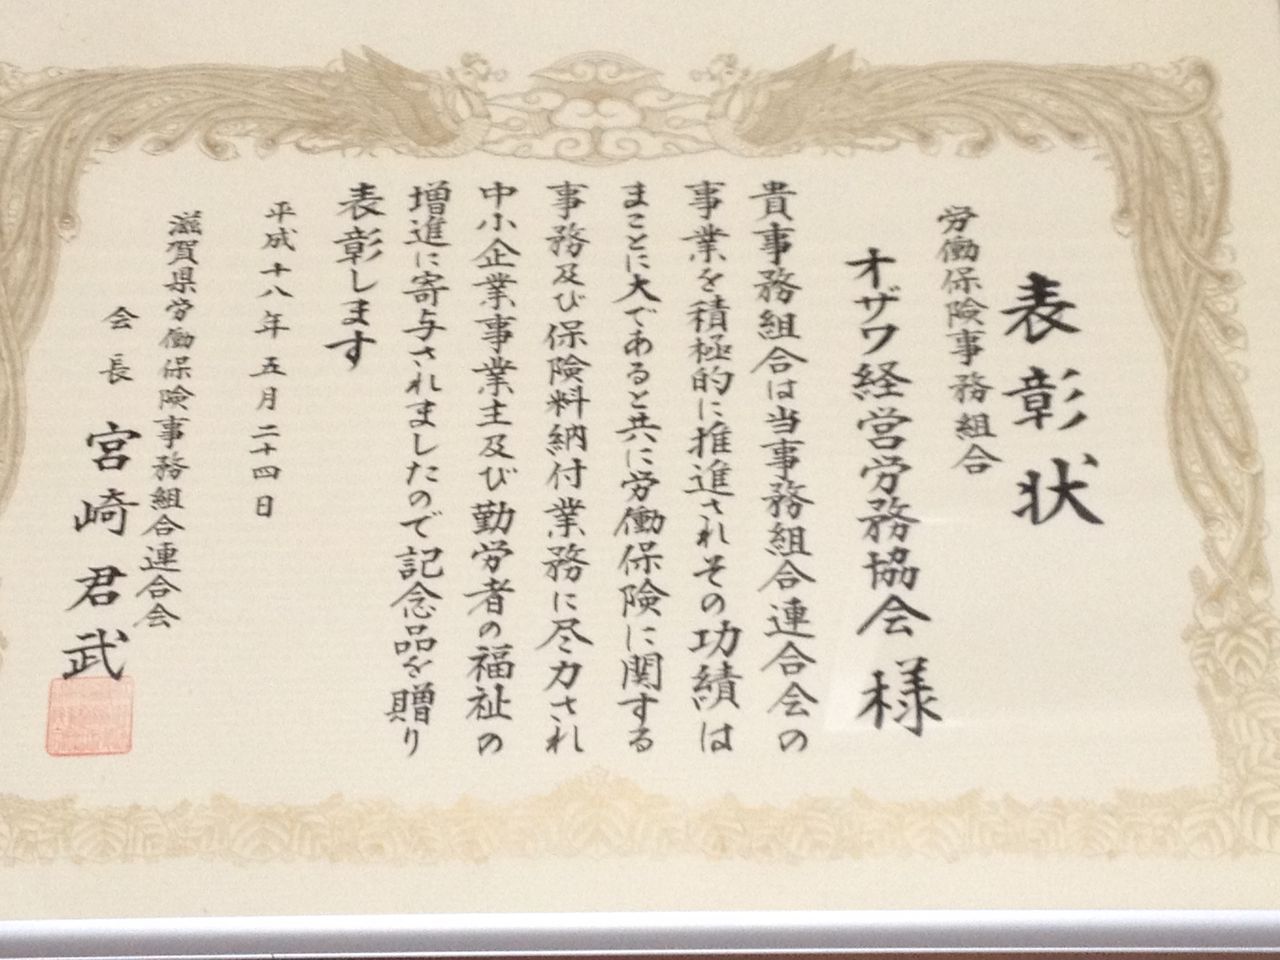 表彰状
労働保険事務組合
オザワ経営労務協会 様
貴事務組合は当事務組合連合会の
事業を積極的に推進されその功績は
まことに大であると共に労働保険に関する
事務及び保険料納付業務に尽力され
中小企業事業主及び勤労者の福祉の
増進に寄与されましたので記念品を贈り
表彰します
平成十八年五月二十四日
滋賀県労働保険事務組合連合会
会長 宮崎君武